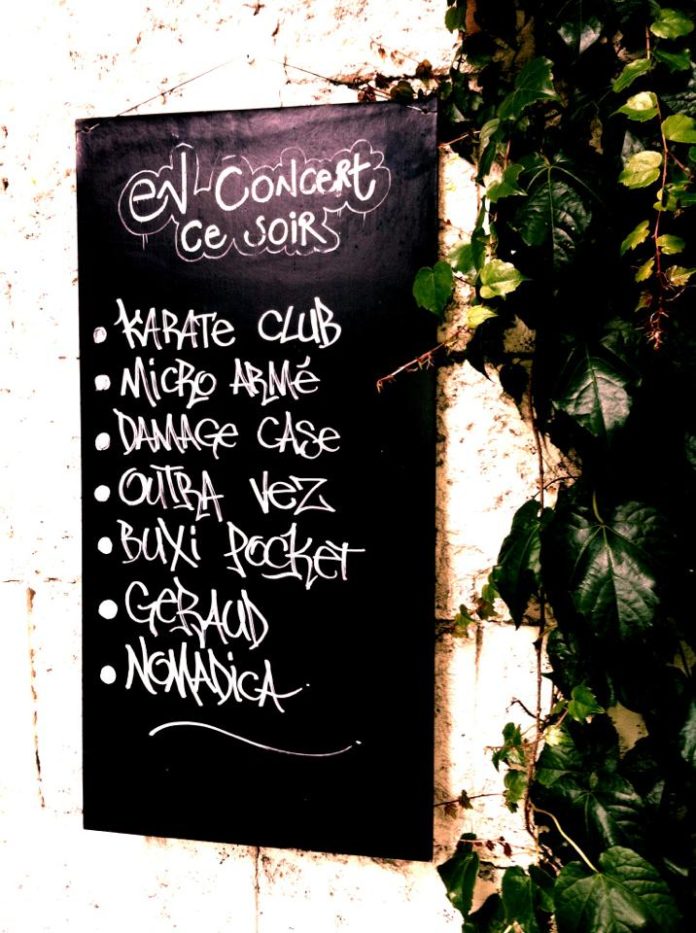 en concert
ce soir
• Karate Club
• Micro Armé
• Damage Case
• Outra Vez
• Buxi Pocket
• Geraud
• Nomadica